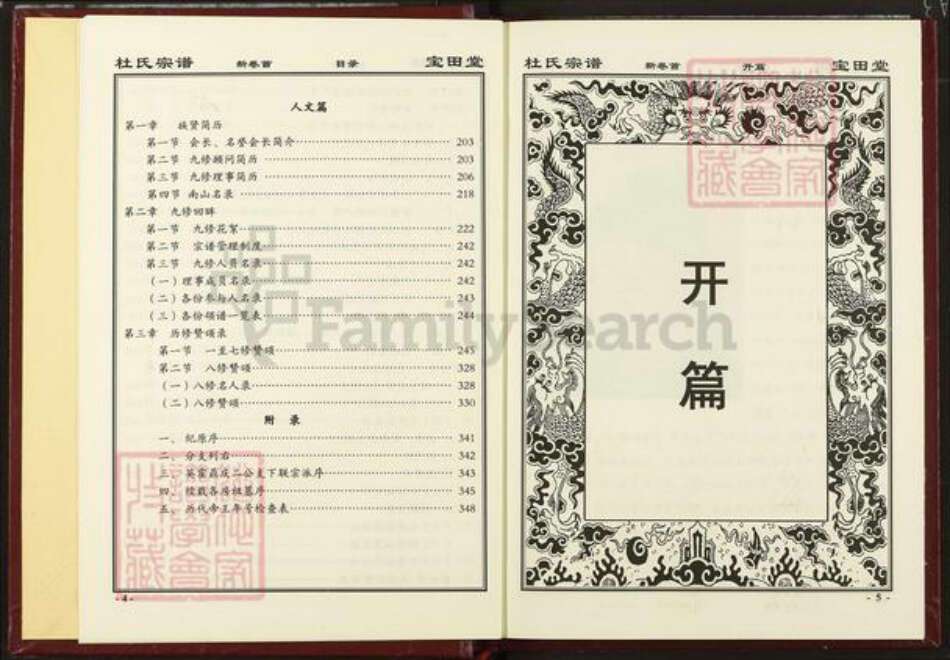 杜氏宗谱 新卷首 目录 宝田堂
人文篇
第一章 族贤简历
第一节 会长、名誉会长简介 203
第二节 九修顾问简历 203
第三节 九修理事简历 206
第四节 南山名录 218
第二章 九修回眸
第一节 九修花絮 222
第二节 宗谱管理制度 242
第三节 九修人员名录 242
(一)理事成员名录 242
(二)各份参与人名录 243
(三)各份领谱一览表 244
第三章 历修赞颂录
第一节 一至七修赞颂 245
第二节 八修赞颂 328
(一)八修名人录 328
(二)八修赞颂 330
附 录
一、纪原序 341
二、分支列右 342
三、英霍鼎庆二公支下联宗派序 343
四、续载各房祖墓序 345
五、历代帝王年号检查表 348
- 4 -
杜氏宗谱 新卷首 开篇 宝田堂
开
篇
- 5 -
FamilySearch